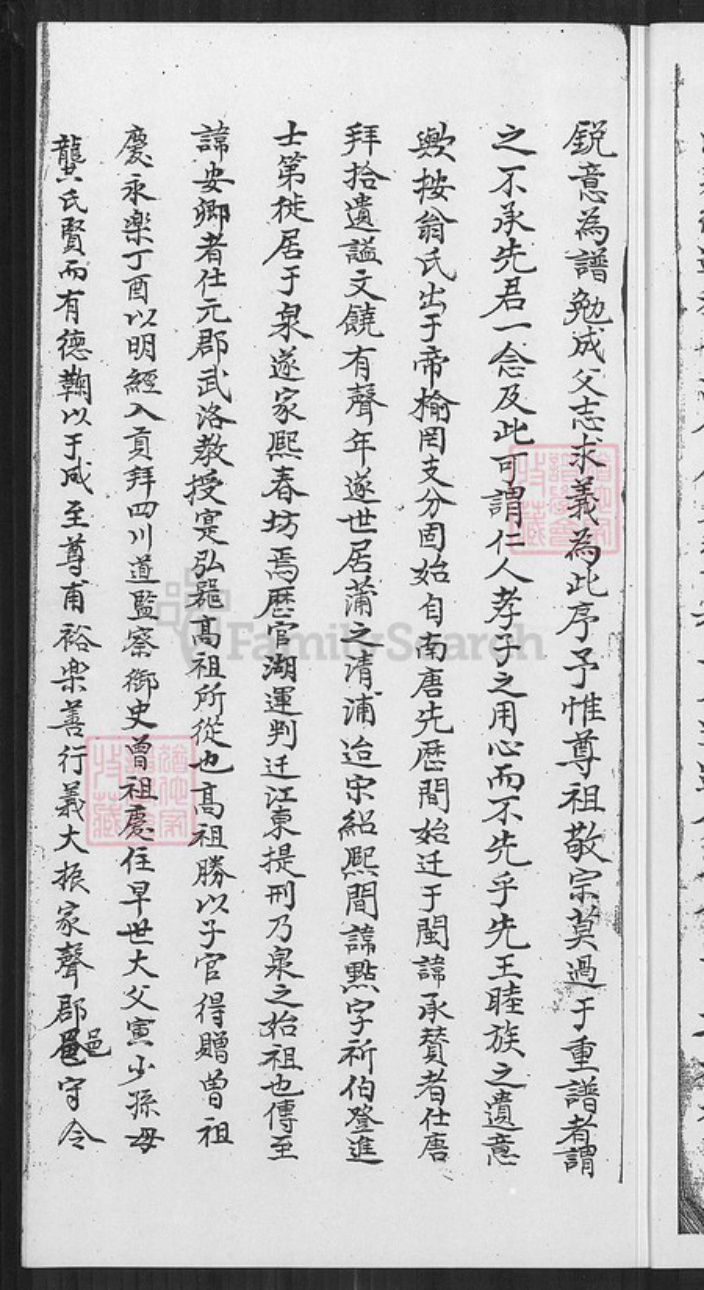 銳意為譜勉成父志求義為此序予惟尊祖敬宗莫過于重譜者謂
之不承先君一念及此可謂仁人孝子之用心而不先乎先王睦族之遺意
歟按翁氏出于帝榆罔支分固始自南唐先歷間始迁于閩諱承贊者仕唐
拜拾遺謚文饒有聲年遂世居蒲之清浦迨宋紹熙間諱點字祈伯登進
士第徙居于泉遂家熙春坊焉歷官湖運判迁江東提刑乃泉之始祖也傳至
諱安卿者仕元郡武洛教授寔弘毅高祖所從也高祖勝以子官得贈曾祖
慶永樂丁酉以明經入貢拜四川道監察御史曾祖慶任早世大父寅少孫母
龔氏賢而有德鞠以于成至尊甫裕樂善行義大振家聲郡邑守令
FamilySearch